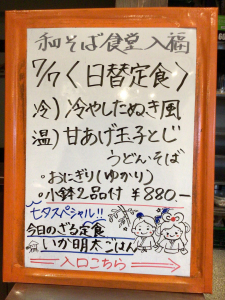 和そば食堂 入福
7/7〈日替定食〉
冷)冷やしたぬき風
温)甘あげ玉子とじ
うどん・そば
・おにぎり(ゆかり)
・小鉢2品付 ¥880.-
七夕スペシャル!!
今日のざる定食
いか明太ごはん
入口こちら